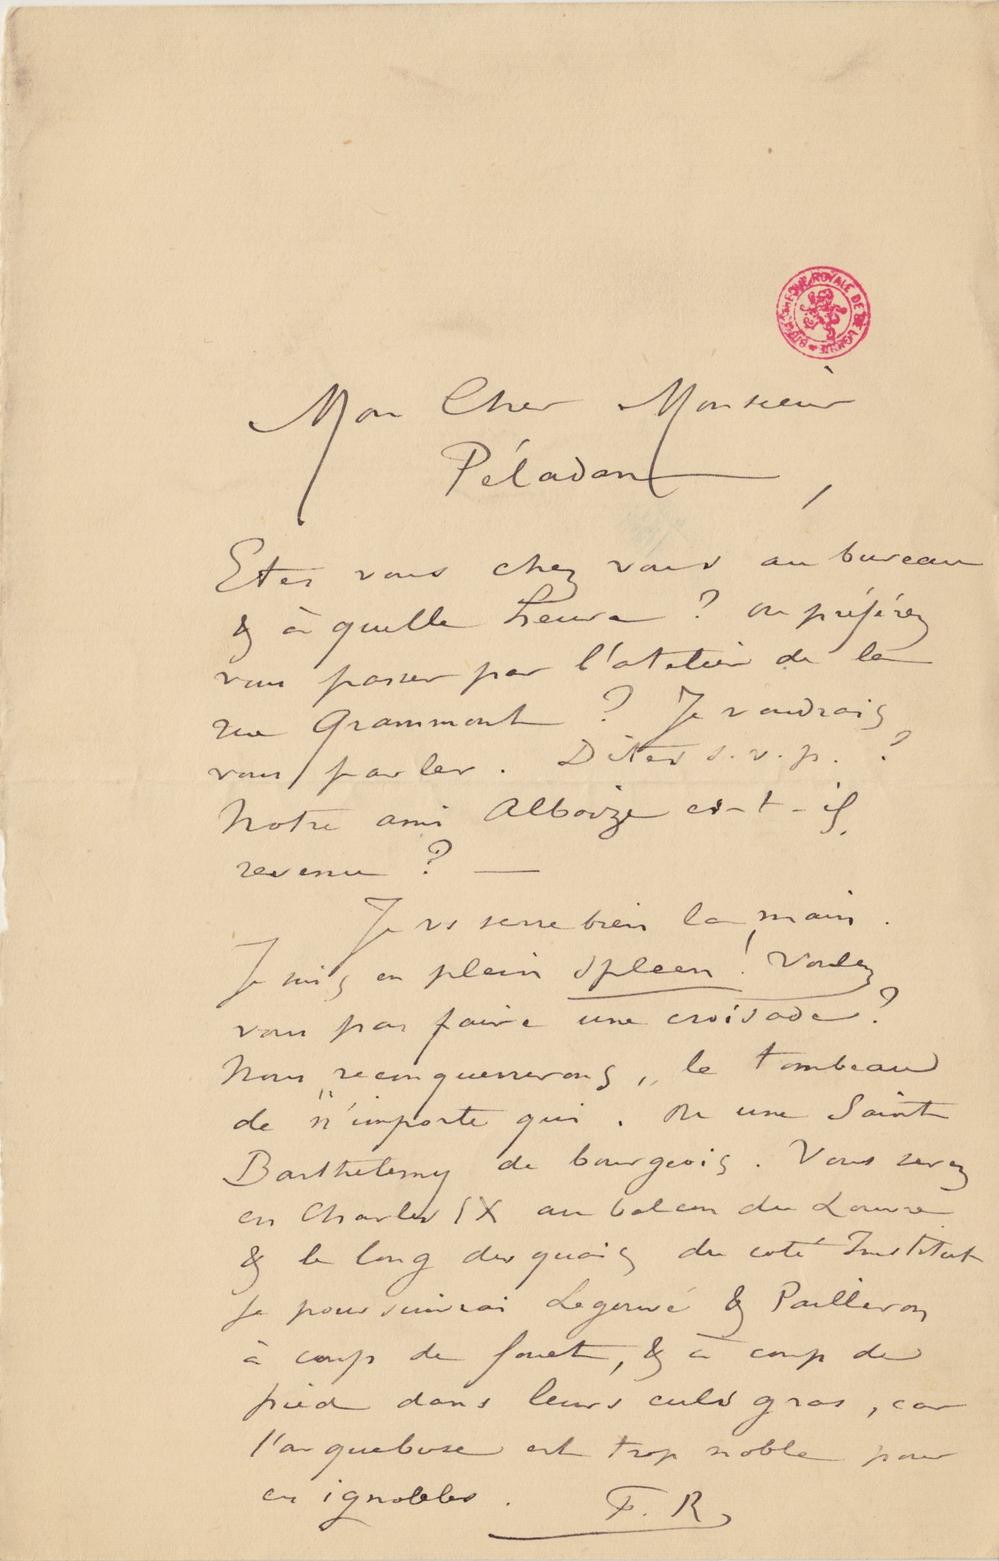 BIBLIOTHEQUE ROYALE DE BELGIQUE
Mon Cher Monsieur
Péladan,
Etes vous chez vous au bureau
& à quelle heure ? ou préférez
vous passer par l'atelier de la
rue Grammont ? Je voudrais
vous parler. Dites s.v.p. ?
Notre ami Alboize est-il
revenu ? —
Je vs serre bien la main.
Je suis en plein spleen ! Voulez
vous pas faire une croisade ?
Nous reconquerrerons, le tombeau
de "n'importe qui. Ou une Saint
Barthelemy de bourgeois. Vous serez
en Charles IX au balcon du Louvre
& le long des quais du coté Institut
je poursuivrai Legouvé & Pailleron
à coups de fouet, & à coup de
pied dans leurs culs gras, car
l'arquebuse est trop noble pour
ces ignobles. F. R.